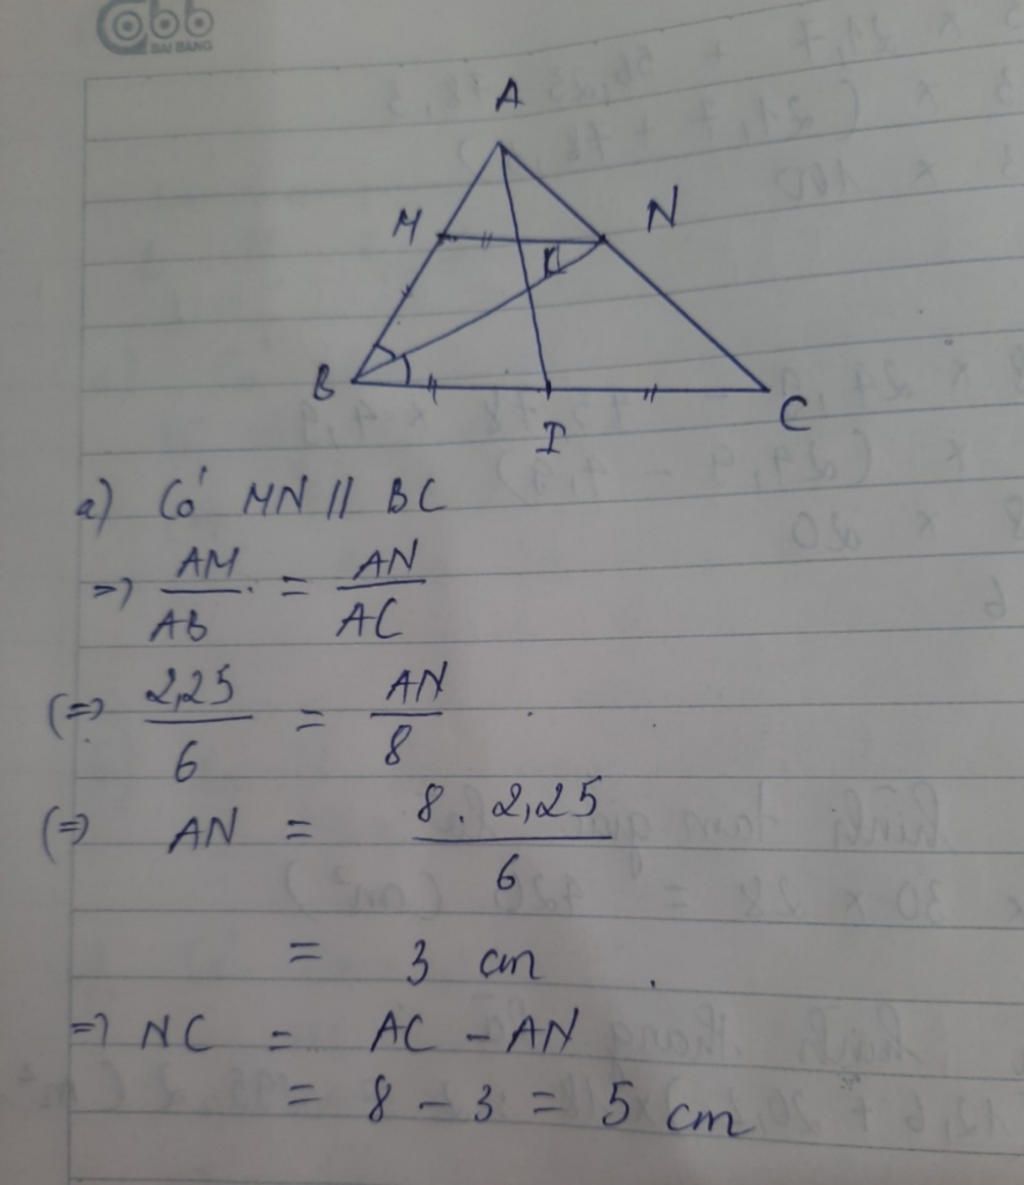 Cabb
BAI BANG
A
M
N
K
B
I
C
a) Có MN // BC
=> AM/AB = AN/AC
(=> 2,25/6 = AN/8
(=> AN = 8 . 2,25/6
= 3 cm
=> NC = AC - AN
= 8 - 3 = 5 cm